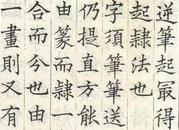 逆筆起最得
起隷法也
字須筆筆送
仍提直方能
由篆而隷一
合而分也由
一畫則又有